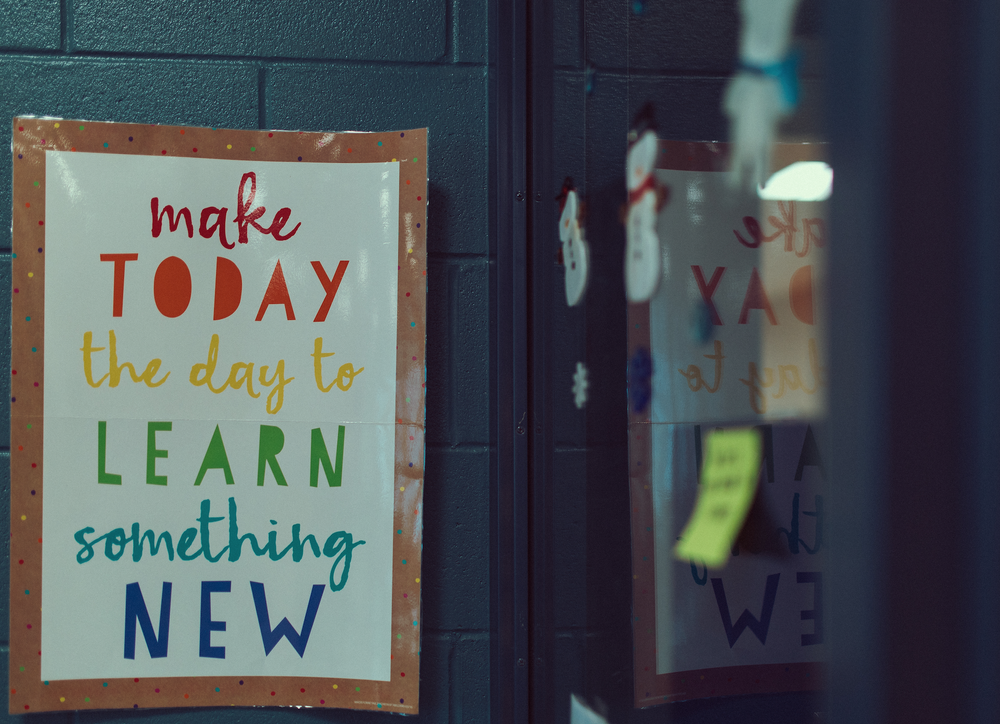 make
TODAY
the day to
LEARN
something
NEW